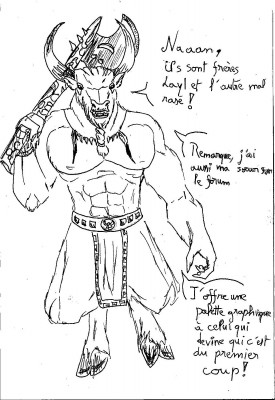 Naaan,
ils sont frères
Layl et l'autre mal
rasé !
Remarque, j'ai
aussi ma soeur sur
le forum
J'offre une
palette graphique
à celui qui
devine qui c'est
du premier
coup !